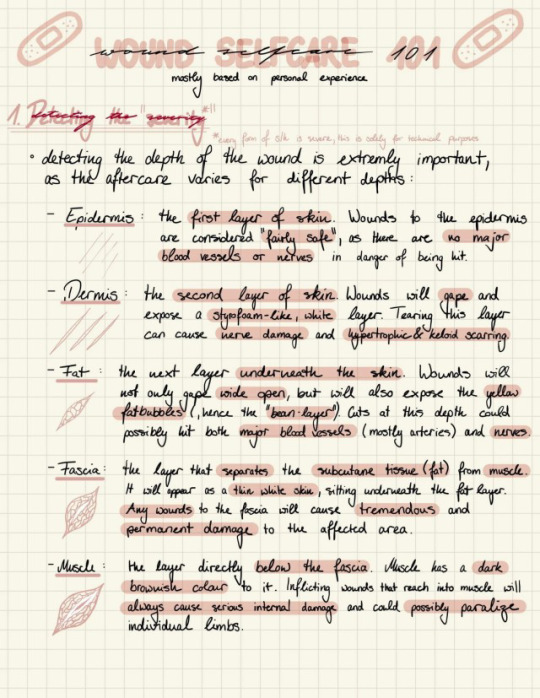 WOUND SELFCARE 101
mostly based on personal experience
1. Detecting the "severity"*!!
*every form of s/h is severe, this is solely for technical purposes
• detecting the depth of the wound is extremly important,
as the aftercare varies for different depths:
- Epidermis: the first layer of skin. Wounds to the epidermis
are considered "fairly safe", as there are no major
blood vessels or nerves in danger of being hit.
- Dermis: the second layer of skin. Wounds will gape and
expose a styrofoam-like, white layer. Tearing this layer
can cause nerve damage and hypertrophic & keloid scarring.
- Fat: the next layer underneath the skin. Wounds will
not only gape wide open, but will also expose the yellow
fatbubbles (, hence the "bean-layer"). Cuts at this depth could
possibly hit both major blood vessels (mostly arteries) and nerves.
- Fascia: the layer that separates the subcutane tissue (fat) from muscle.
It will appear as a thin white skin, sitting underneath the fat layer.
Any wounds to the fascia will cause tremendous and
permanent damage to the affected area.
- Muscle: the layer directly below the fascia. Muscle has a dark
brownish colour to it. Inflicting wounds that reach into muscle will
always cause serious internal damage and could possibly paralize
individual limbs.